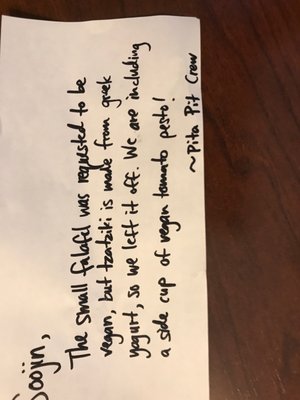 Soojin,
The small falafel was requested to be
vegan, but tzatziki is made from greek
yogurt, so we left it off. We are including
a side cup of vegan tomato pesto!
~Pita Pit Crew